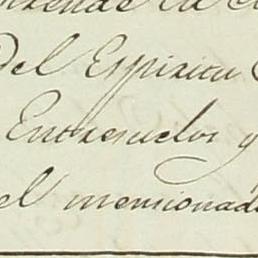 del Espiritu
Entresuelos y
el mencionad